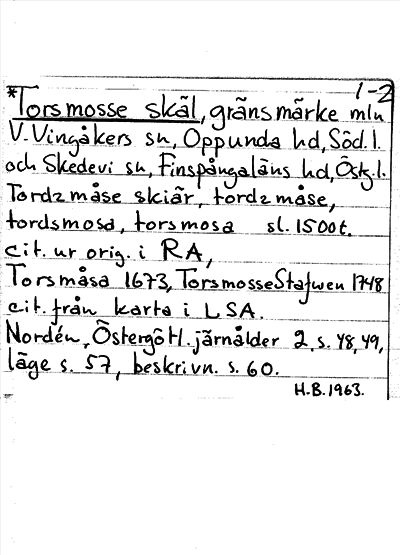 1-2
*Torsmosse skäl, gränsmärke mln
V. Vingåkers sn, Oppunda hd, Söd. l.
och Skedevi sn, Finspångaläns hd, Östg. l.
Tordz måse skiär, tordz måse,
tordsmosa, torsmosa sl. 1500t.
cit. ur orig. i RA,
Torsmåsa 1673, TorsmosseStafwen 1748
cit. från karta i LSA.
Nordén, Östergötl. järnålder 2, s. 48, 49,
läge s. 57, beskrivn. s. 60.
H.B. 1963.